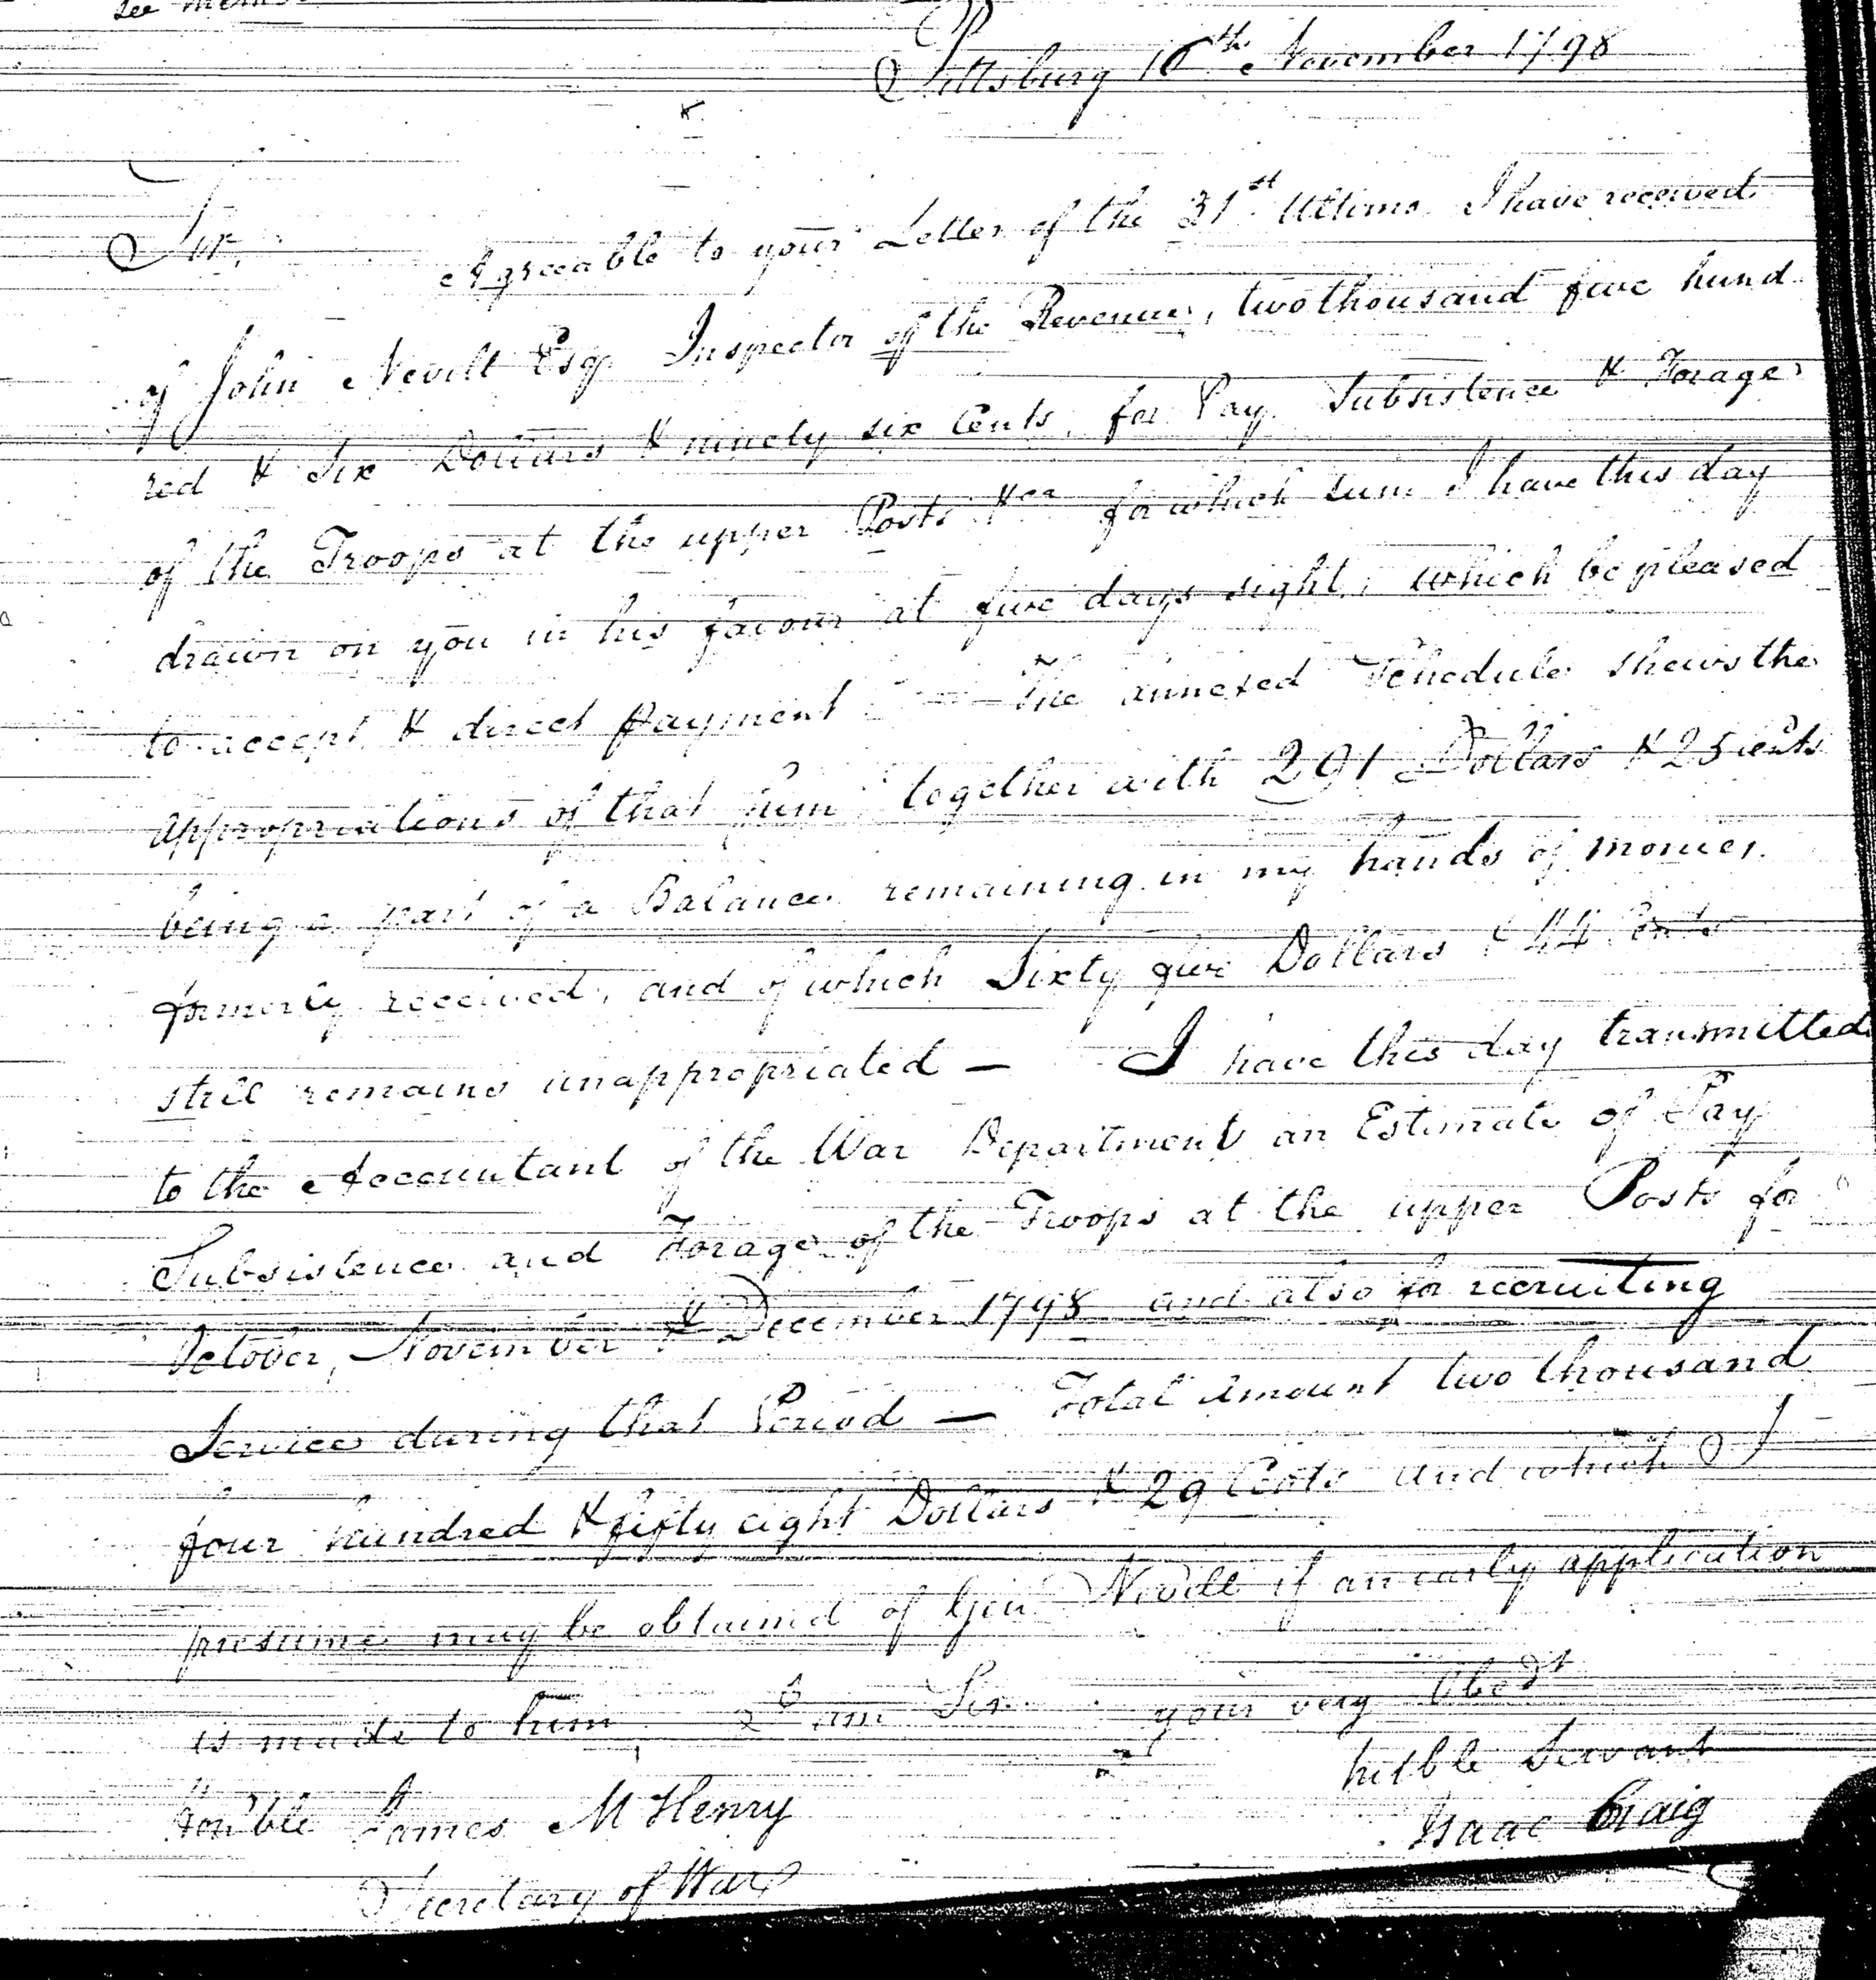 Pittsburg 16th November 1798
Sir,
Agreeable to your Letter of the 31st Ultimo I have received
of John Nevill Esqr. Inspector of the Revenue, two thousand five hund
red & Six Dollars & ninety six Cents, for Pay Subsistence & Forage
of the Troops at the upper Posts &ca for which sum I have this day
drawn on you in his favour at five days sight, which be pleased
to accept & direct payment — The annexed Schedule shews the
appropriations of that sum together with 291 Dollars & 25 cents
being a part of a Balance remaining in my hands of monies
formerly received, and of which Sixty five Dollars & 44 Cents
still remains unappropriated — I have this day transmitted
to the Accountant of the War Department an Estimate of Pay
Subsistence and Forage of the Troops at the upper Posts for
October, November & December 1798 and also for recruiting
Service during that Period — Total Amount two thousand
four hundred & fifty eight Dollars & 29 Cents and which I
presume may be obtained of Genl Nevill if an early application
is made to him I am Sir your very Obedt
hūble Servant
Isaac Craig
Honble James McHenry
Secretary of War